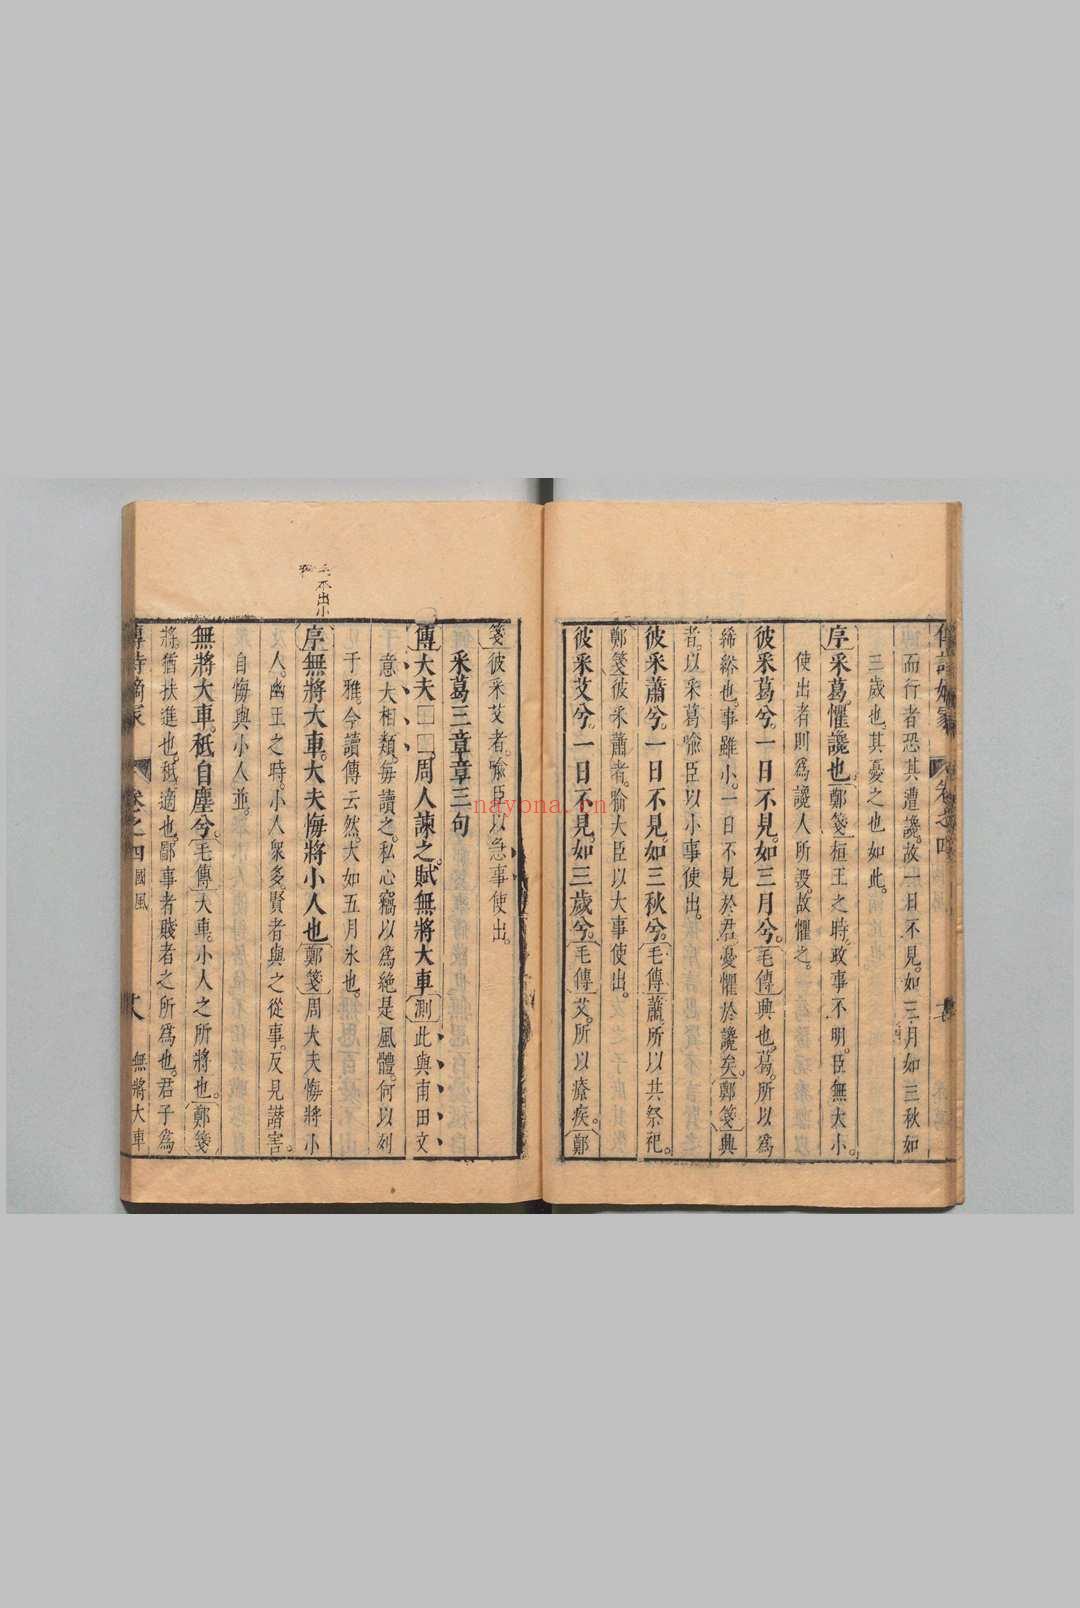 而行者恐其遭讒。故一日不見。如三月如三秋如
三歲也。其憂之也如此。
序采葛。懼讒也。鄭箋桓王之時。政事不明。臣無大小。
使出者則爲讒人所毀。故懼之。
彼采葛兮。一日不見。如三月兮。毛傳興也。葛。所以爲
絺綌也。事雖小。一日不見於君。憂懼於讒矣。鄭箋興
者。以采葛喩臣以小事使出。
彼采蕭兮。一日不見。如三秋兮。毛傳蕭。所以共祭祀。
鄭箋彼采蕭者。喻大臣以大事使出。
彼采艾兮。一日不見。如三歲兮。毛傳艾。所以療疾。鄭
箋彼采艾者。喩臣以急事使出。
采葛三章章三句
傳大夫□□周人諫之。賦無將大車測此與甫田文
意大相類。每讀之。私心竊以爲絶是風體。何以列
于雅。今讀傳云然。大如五月氷也。
序無將大車。大夫悔將小人也鄭箋周大夫悔將小
人。幽王之時。小人衆多。賢者與之從事。反見譖害。
自悔與小人並。
無將大車。祗自塵兮。毛傳大車。小人之所將也。鄭箋
將。猶扶進也。祗。適也。鄙事者賤者之所爲也。君子爲
卷之四國風
無將大車
nayona.cn